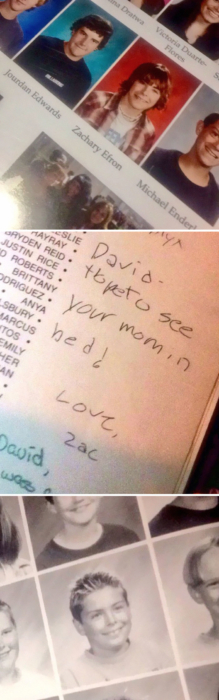 Victoria Duarte-
Flores
Jourdan Edwards
Zachary Efron
Michael Enderl
LESLIE
HAYRAY
BRYDEN REID
JUSTIN RICE
ROBERTS
BRITTANY
ODRIGUEZ
ANYA
LSBURY
MARCUS
TOS
EMILY
HER
AN
David-
Hope to see
your mom in
hed!
Love,
Zac
David,